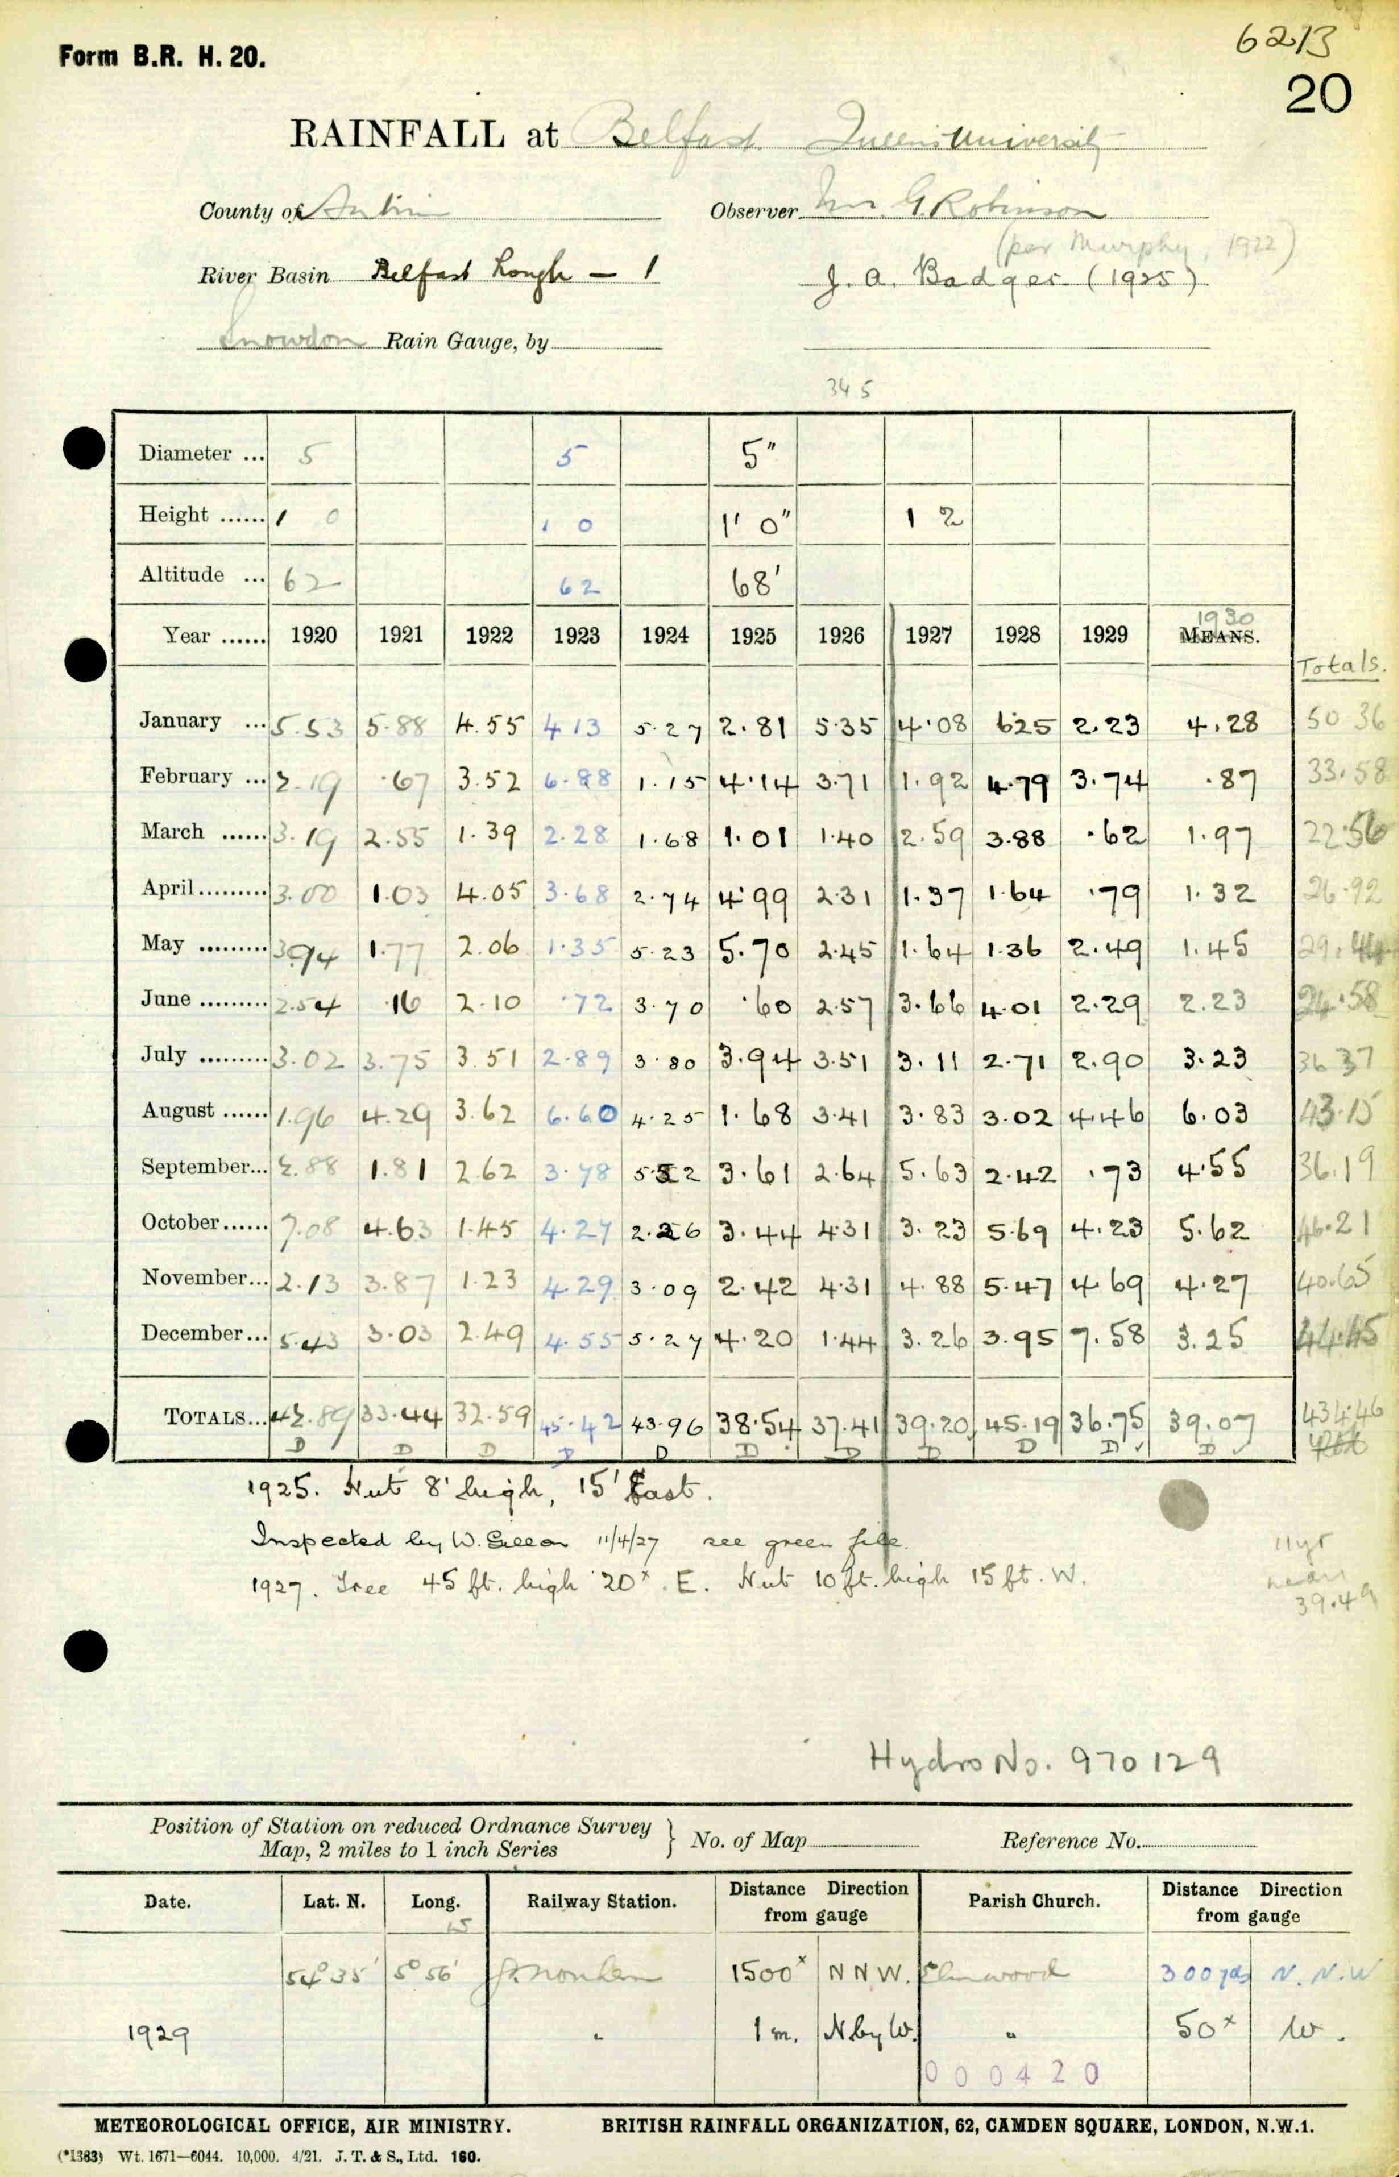 6213
Form B.R. H. 20.
20
RAINFALL at Belfast Queens University
County of Antrim Observer Mr. G. Robinson
(per Murphy, 1922)
River Basin Belfast Lough — 1 J. A. Badger (1925)
Snowdon Rain Gauge, by
345
Diameter ... 5 5 5"
Height ...... 1 0 1 0 1' 0" 1 2
Altitude ... 62 62 68'
1930
Year ...... 1920 1921 1922 1923 1924 1925 1926 1927 1928 1929 MEANS.
Totals.
January ... 5.53 5.88 4.55 4 13 5.27 2.81 5.35 4.08 6.25 2.23 4.28 50 36
February ... 2.19 .67 3.52 6.88 1.15 4.14 3.71 1.92 4.79 3.74 .87 33.58
March ...... 3.19 2.55 1.39 2.28 1.68 1.01 1.40 2.59 3.88 .62 1.97 22.56
April ......... 3.00 1.03 4.05 3.68 2.74 4.99 2.31 1.37 1.64 .79 1.32 26.92
May ......... 3.94 1.77 2.06 1.35 5.23 5.70 2.45 1.64 1.36 2.49 1.45 29.44
June ......... 2.54 .16 2.10 .72 3.70 .60 2.57 3.66 4.01 2.29 2.23 24.58
July ......... 3.02 3.75 3.51 2.89 3.80 3.94 3.51 3.11 2.71 2.90 3.23 36 37
August ...... 1.96 4.29 3.62 6.60 4.25 1.68 3.41 3.83 3.02 4.46 6.03 43.15
September... 2.88 1.81 2.62 3.78 5.52 3.61 2.64 5.63 2.42 .73 4.55 36.19
October ...... 7.08 4.63 1.45 4.27 2.26 3.44 4.31 3.23 5.69 4.23 5.62 46.21
November... 2.13 3.87 1.23 4.29 3.09 2.42 4.31 4.88 5.47 4.69 4.27 40.65
December... 5.43 3.03 2.49 4.55 5.27 4.20 1.44 3.26 3.95 7.58 3.25 44.45
TOTALS... 42.89 33.44 32.59 45.42 43.96 38.54 37.41 39.20 45.19 36.75 39.07 434.46
D D D D D D D D D D ✓ D ✓
1925. Hut 8' high, 15' East.
Inspected by W. 11/4/27 see green file.
1927. Tree 45 ft. high 20ˣ E. Hut 10 ft. high 15 ft. W.
11 yr
mean
39.49
Hydro No. 970129
Position of Station on reduced Ordnance Survey
Map, 2 miles to 1 inch Series } No. of Map Reference No.
Date. Lat. N. Long. Railway Station. Distance Direction from gauge Parish Church. Distance Direction from gauge
54° 35' 5° 56' Gt. Northern 1500ˣ N N W. Elmwood 300 yds N. N. W
1929 " 1 m. N. by W. " 50ˣ W.
000420
METEOROLOGICAL OFFICE, AIR MINISTRY. BRITISH RAINFALL ORGANIZATION, 62, CAMDEN SQUARE, LONDON, N.W.1.
(*1383) Wt. 1671—6044. 10,000. 4/21. J. T. & S., Ltd. 160.